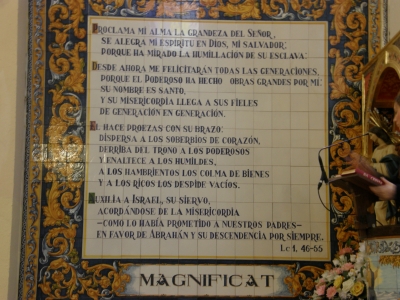 PROCLAMA MI ALMA LA GRANDEZA DEL SEÑOR,
SE ALEGRA MI ESPÍRITU EN DIOS, MI SALVADOR,
PORQUE HA MIRADO LA HUMILLACIÓN DE SU ESCLAVA.
DESDE AHORA ME FELICITARÁN TODAS LAS GENERACIONES,
PORQUE EL PODEROSO HA HECHO OBRAS GRANDES POR MÍ:
SU NOMBRE ES SANTO,
Y SU MISERICORDIA LLEGA A SUS FIELES
DE GENERACIÓN EN GENERACIÓN.
EL HACE PROEZAS CON SU BRAZO:
DISPERSA A LOS SOBERBIOS DE CORAZÓN,
DERRIBA DEL TRONO A LOS PODEROSOS
Y ENALTECE A LOS HUMILDES,
A LOS HAMBRIENTOS LOS COLMA DE BIENES
Y A LOS RICOS LOS DESPIDE VACÍOS.
AUXILIA A ISRAEL, SU SIERVO,
ACORDÁNDOSE DE LA MISERICORDIA
—COMO LO HABÍA PROMETIDO A NUESTROS PADRES—
EN FAVOR DE ABRAHÁN Y SU DESCENDENCIA POR SIEMPRE.
Lc 1, 46-55
MAGNIFICAT